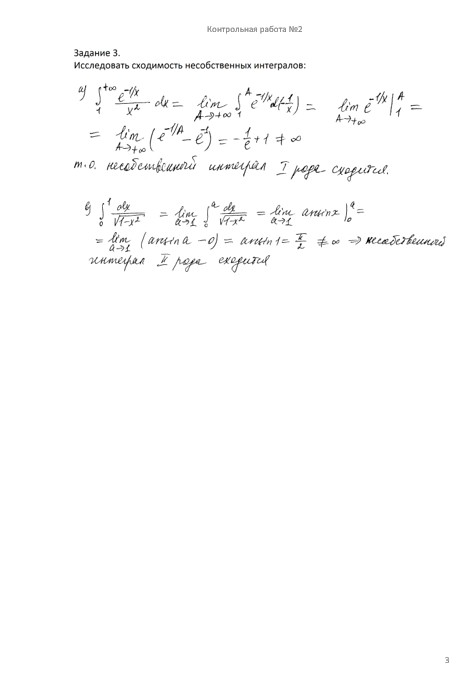 Контрольная работа №2
Задание 3.
Исследовать сходимость несобственных интегралов:
а) ∫₁^{+∞} e^{-1/x}/x² dx = lim_{A→+∞} ∫₁^A e^{-1/x} d(-1/x) = lim_{A→+∞} e^{-1/x} |₁^A =
= lim_{A→+∞} (e^{-1/A} - e^{-1}) = -1/e + 1 ≠ ∞
т.о. несобственный интеграл I рода сходится.
б) ∫₀¹ dx/√(1-x²) = lim_{a→1} ∫₀^a dx/√(1-x²) = lim_{a→1} arcsin x |₀^a =
= lim_{a→1} (arcsin a - 0) = arcsin 1 = π/2 ≠ ∞ ⇒ несобственный
интеграл II рода сходится
3